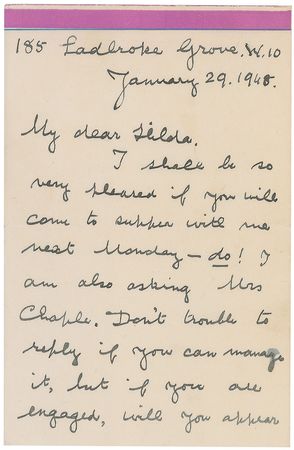 185 Ladbroke Grove. W.10
January 29. 1948.
My dear Hilda.
I shall be so
very pleased if you will
come to supper with me
next Monday – do! I
am also asking Mrs
Chaple. Don't trouble to
reply if you can manage
it, but if you are
engaged, will you appear